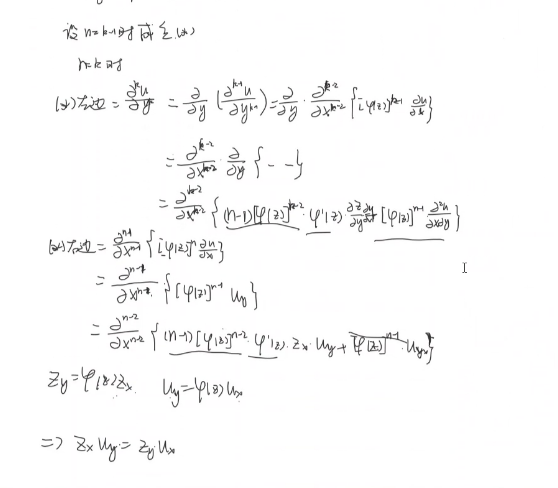 设 n=k-1时成立(*)
n=k时
(*)左边 = \frac{∂^k u}{∂y^k} = \frac{∂}{∂y} (\frac{∂^{k-1} u}{∂y^{k-1}}) = \frac{∂}{∂y} · \frac{∂^{k-2}}{∂x^{k-2}} {[φ(z)]^{k-1} \frac{∂u}{∂x}}
= \frac{∂^{k-2}}{∂x^{k-2}} \frac{∂}{∂y} { - - }
= \frac{∂^{k-2}}{∂x^{k-2}} { (n-1)[φ(z)]^{n-2} · φ'(z) · \frac{∂z}{∂y} \frac{∂u}{∂x} [φ(z)]^{n-1} \frac{∂^2 u}{∂x∂y} }
(*)右边 = \frac{∂^{n-1}}{∂x^{n-1}} { [φ(z)]^n \frac{∂u}{∂x} }
= \frac{∂^{n-1}}{∂x^{n-1}} · { [φ(z)]^{n-1} u_y }
= \frac{∂^{n-2}}{∂x^{n-2}} { (n-1)[φ(z)]^{n-2} · φ'(z) · z_x · u_y + [φ(z)]^{n-1} · u_{yx} }
z_y = φ(z) z_x u_y = φ(z) u_x
=> z_x u_y = z_y u_x